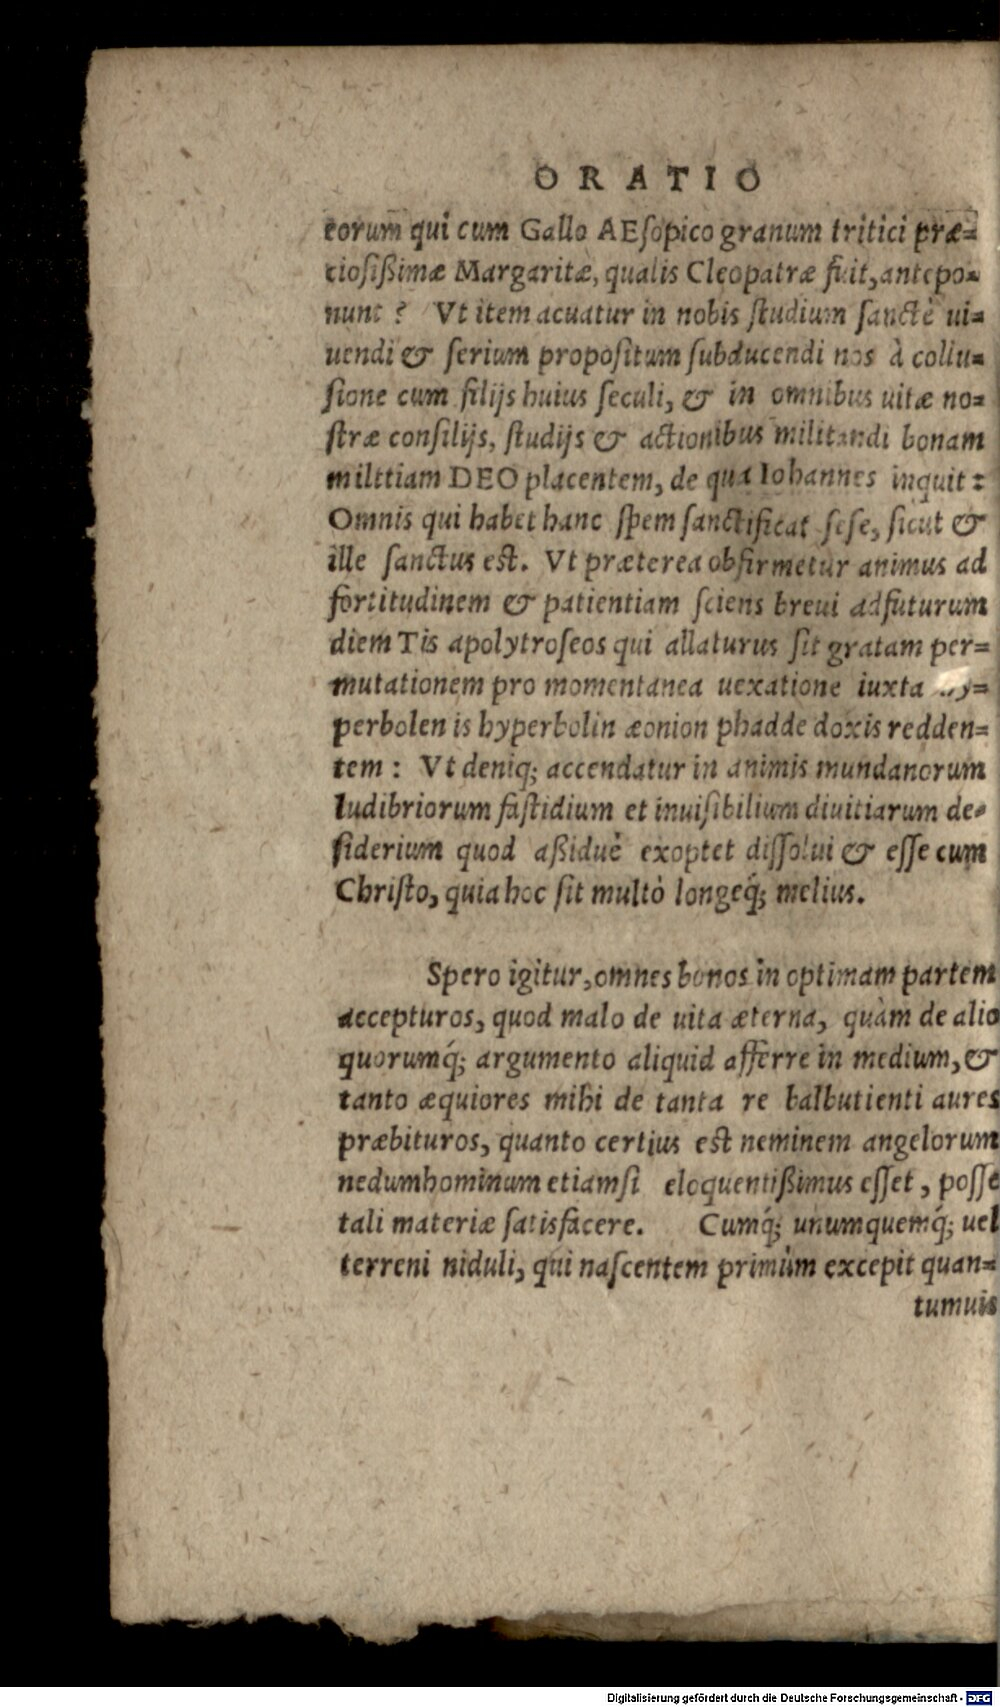 ORATIO
eorum qui cum Gallo AEsopico granum tritici præ=
ciosißimæ Margaritæ, qualis Cleopatræ fuit, antepo=
nunt? Vt item acuatur in nobis studium sanctè ui=
uendi & serium propositum subducendi nos à collu=
sione cum filijs huius seculi, & in omnibus uitæ no=
stræ consilijs, studijs & actionibus militandi bonam
milttiam DEO placentem, de qua Iohannes inquit:
Omnis qui habet hanc spem sanctificat sese, sicut &
ille sanctus est. Vt præterea obfirmetur animus ad
fortitudinem & patientiam sciens breui adfuturum
diem Tis apolytroseos qui allaturus sit gratam per=
mutationem pro momentanea uexatione iuxta
perbolen is hyperbolin æonion phadde doxis redden=
tem: Vt deniq; accendatur in animis mundanorum
ludibriorum fastidium et inuisibilium diuitiarum de=
siderium quod aßiduè exoptet dissolui & esse cum
Christo, quia hoc sit multò longeq́; melius.
Spero igitur, omnes bonos in optimam partem
accepturos, quod malo de uita æterna, quàm de alio
quorumq́; argumento aliquid afferre in medium, &
tanto æquiores mihi de tanta re balbutienti aures
præbituros, quanto certius est neminem angelorum
nedum hominum etiamsi eloquentißimus esset, posse
tali materiæ satisfacere. Cumq́; unumquemq́; uel
terreni niduli, qui nascentem primùm excepit quan=
tumuis
Digitalisierung gefördert durch die Deutsche Forschungsgemeinschaft - DFG